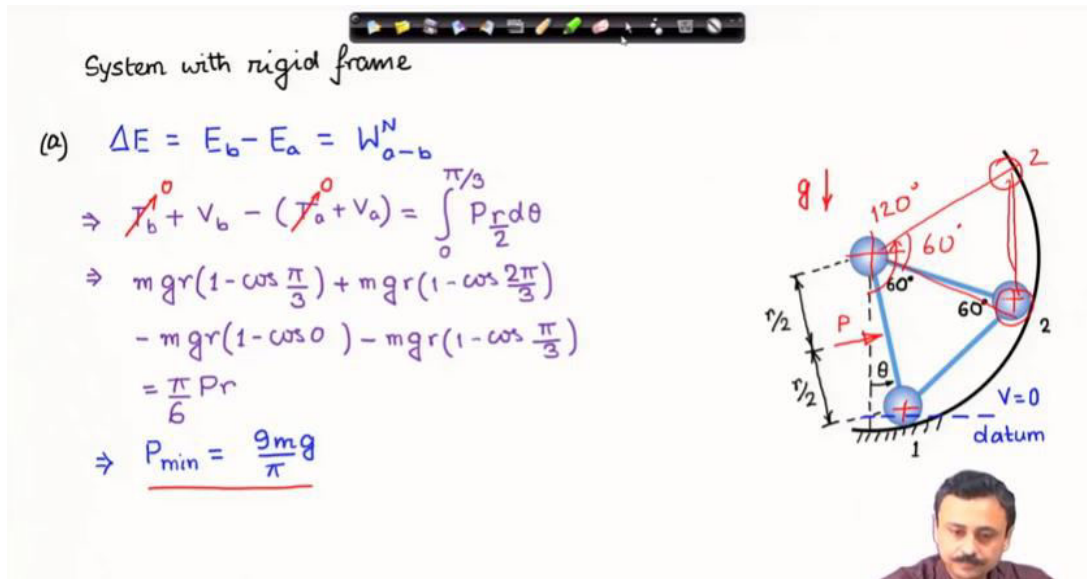 System with rigid frame
(a) ΔE = E_b - E_a = W^N_{a-b}
⇒ T_b^0 + V_b - (T_a^0 + V_a) = ∫_0^{π/3} P r/2 dθ
⇒ mgr(1 - cos π/3) + mgr(1 - cos 2π/3)
- mgr(1 - cos 0) - mgr(1 - cos π/3)
= π/6 Pr
⇒ P_min = 9mg/π
g↓
2
120°
60°
60°
60°
2
r/2
P
r/2
θ
V=0
datum
1